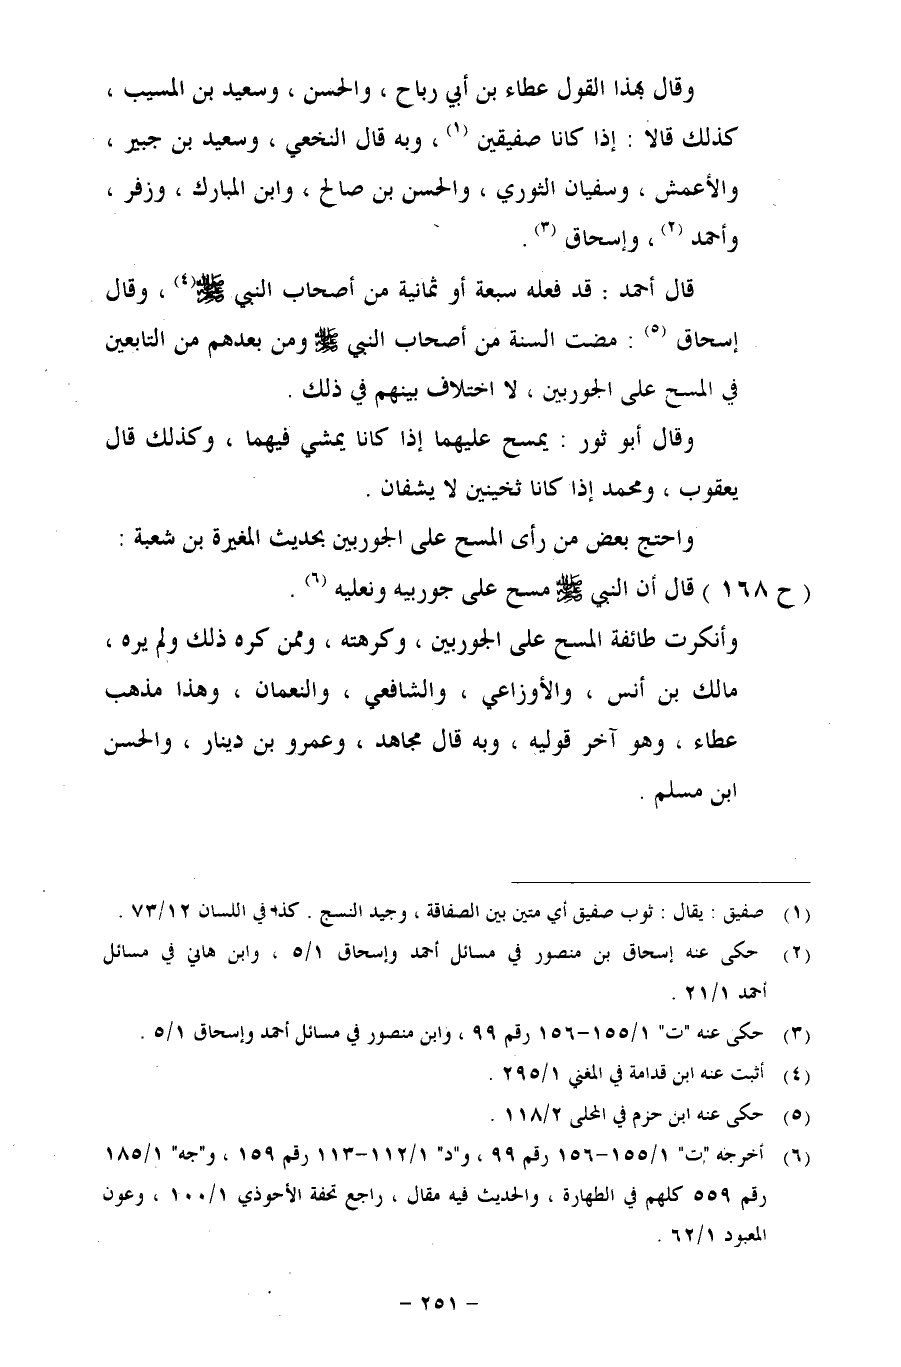 وقال بهذا القول عطاء بن أبي رباح ، والحسن ، وسعيد بن المسيب ،
كذلك قالا : إذا كانا صفيقين (١) ، وبه قال النخعي ، وسعيد بن جبير ،
والأعمش ، وسفيان الثوري ، والحسن بن صالح ، وابن المبارك ، وزفر ،
وأحمد (٢) ، وإسحاق (٣) .
قال أحمد : قد فعله سبعة أو ثمانية من أصحاب النبي ﷺ (٤) ، وقال
إسحاق (٥) : مضت السنة من أصحاب النبي ﷺ ومن بعدهم من التابعين
في المسح على الجوربين ، لا اختلاف بينهم في ذلك .
وقال أبو ثور : يمسح عليهما إذا كانا يمشي فيهما ، وكذلك قال
يعقوب ، ومحمد إذا كانا ثخينين لا يشفان .
واحتج بعض من رأى المسح على الجوربين بحديث المغيرة بن شعبة :
( ح ١٦٨ ) قال أن النبي ﷺ مسح على جوربيه ونعليه (٦) .
وأنكرت طائفة المسح على الجوربين ، وكرهته ، وممن كره ذلك ولم يره ،
مالك بن أنس ، والأوزاعي ، والشافعي ، والنعمان ، وهذا مذهب
عطاء ، وهو آخر قوليه ، وبه قال مجاهد ، وعمرو بن دينار ، والحسن
ابن مسلم .
(١) صفيق : يقال : ثوب صفيق أي متين بين الصفاقة ، وجيد النسج . كذا في اللسان ٧٣/١٢ .
(٢) حكى عنه إسحاق بن منصور في مسائل أحمد وإسحاق ٥/١ ، وابن هاني في مسائل
أحمد ٢١/١ .
(٣) حكى عنه "ت" ١٥٥/١–١٥٦ رقم ٩٩ ، وابن منصور في مسائل أحمد وإسحاق ٥/١ .
(٤) أثبت عنه ابن قدامة في المغني ٢٩٥/١ .
(٥) حكى عنه ابن حزم في المحلى ١١٨/٢ .
(٦) أخرجه "ت" ١٥٥/١–١٥٦ رقم ٩٩ ، و"د" ١١٢/١–١١٣ رقم ١٥٩ ، و"جه" ١٨٥/١
رقم ٥٥٩ كلهم في الطهارة ، والحديث فيه مقال ، راجع تحفة الأحوذي ١٠٠/١ ، وعون
المعبود ٦٢/١ .
– ٢٥١ –